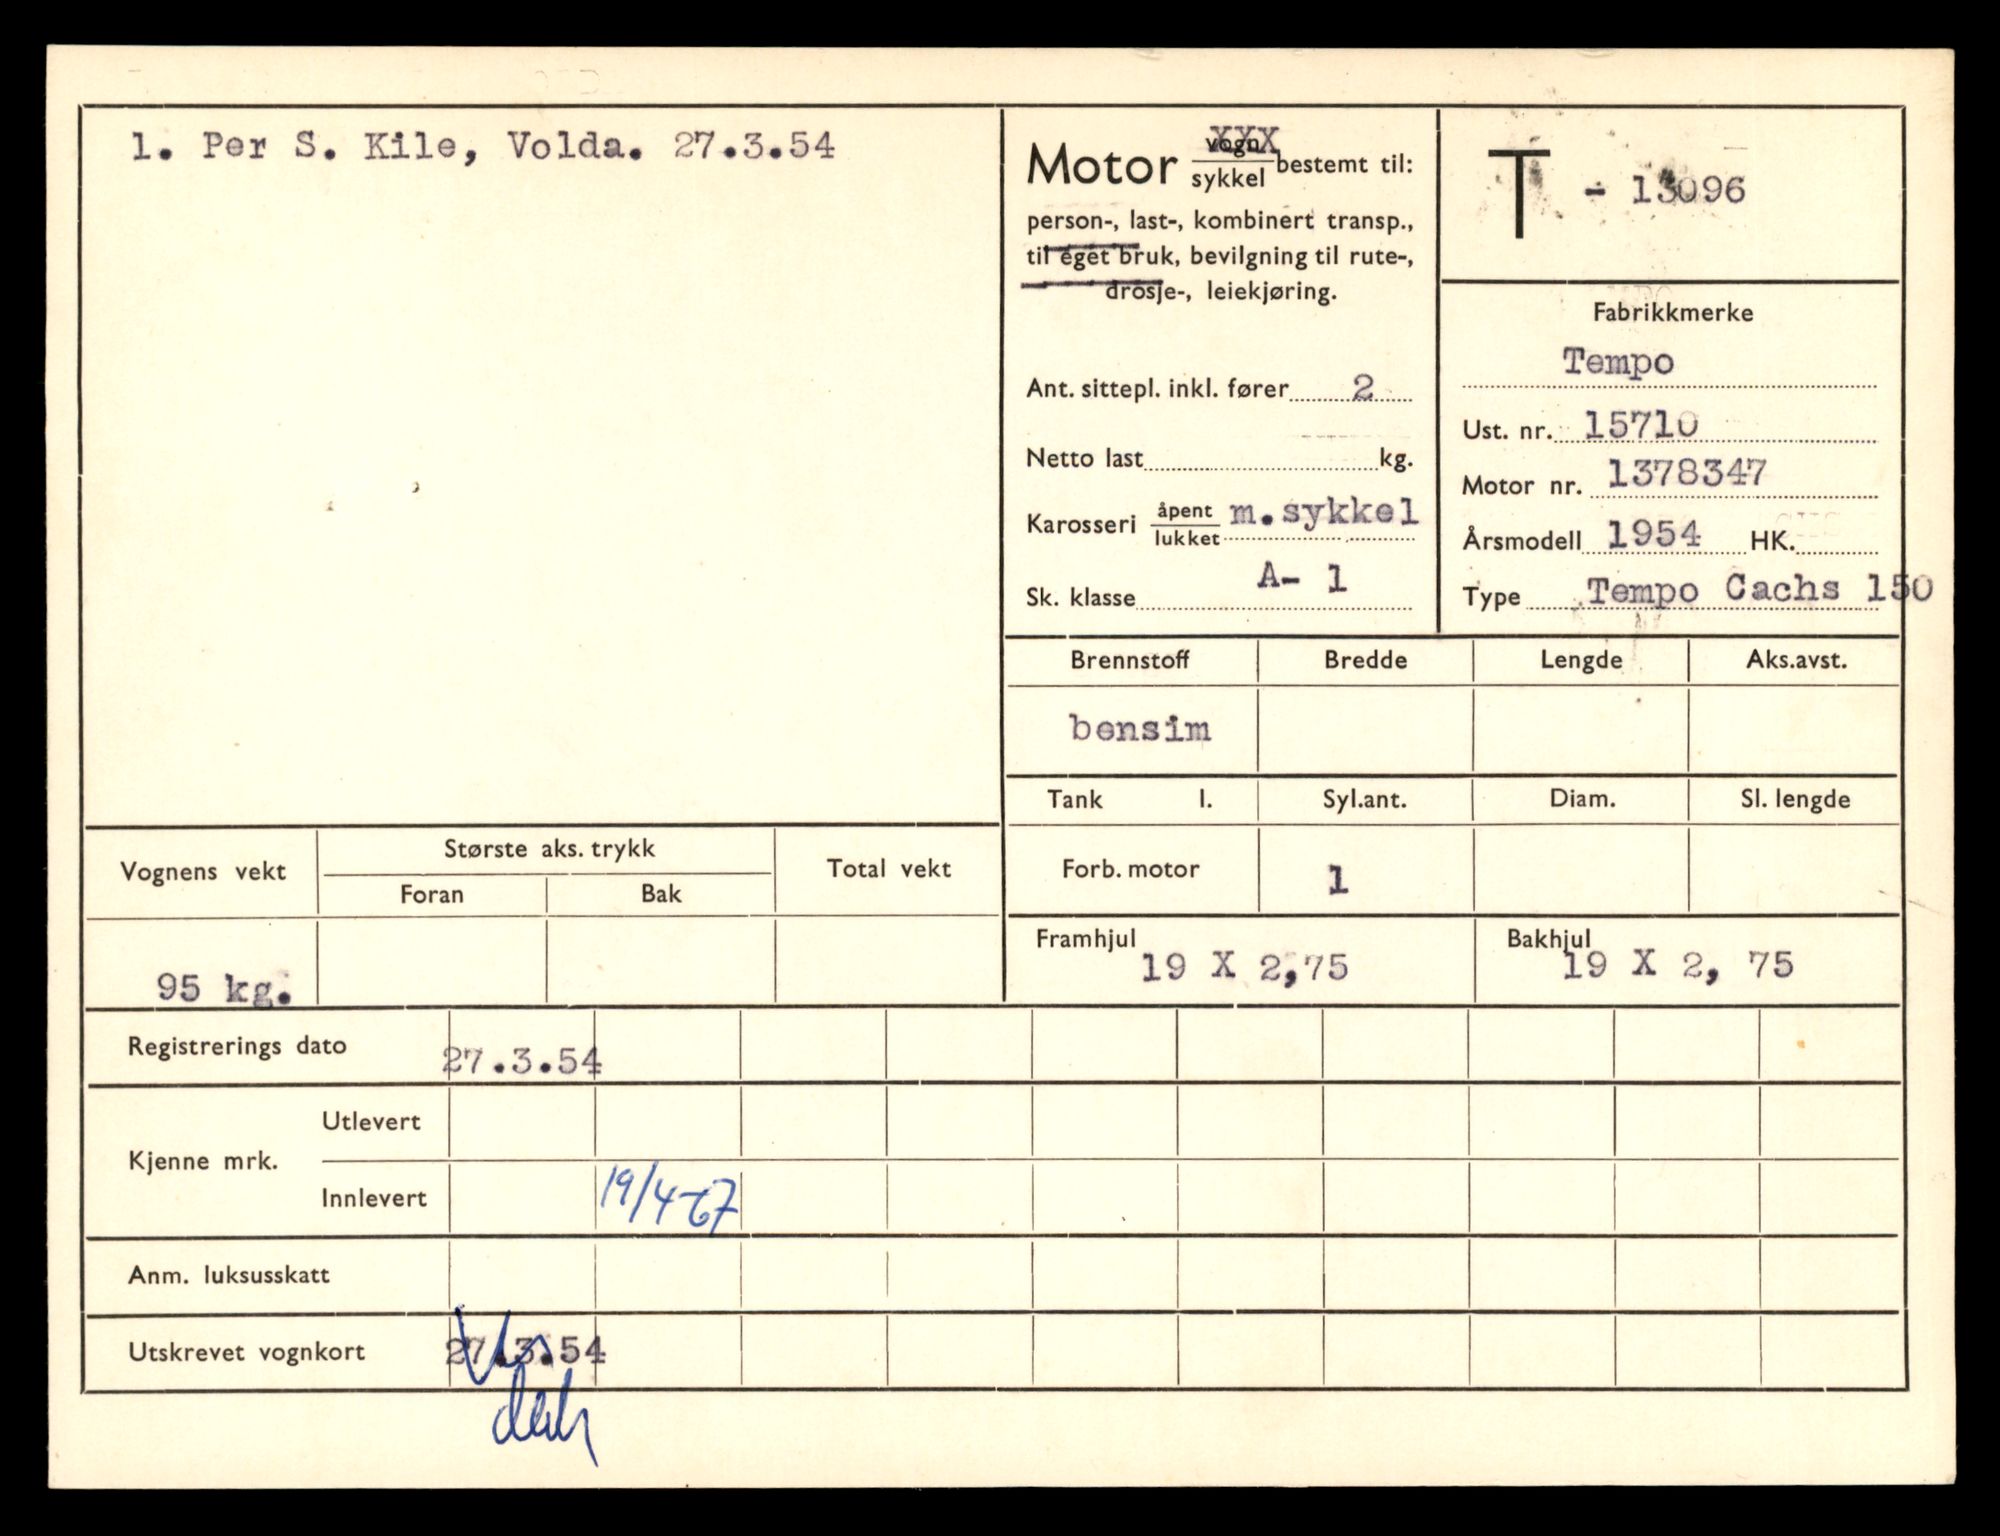 1. Per S. Kile, Volda. 27.3.54
XXX
Motor vogn/sykkel bestemt til:
person-, last-, kombinert transp.,
til eget bruk, bevilgning til rute-,
drosje-, leiekjøring.
Ant. sittepl. inkl. fører 2
Netto last kg.
Karosseri åpent/lukket m.sykkel
Sk. klasse A- 1
T - 13096
Fabrikkmerke
Tempo
Ust. nr. 15710
Motor nr. 1378347
Årsmodell 1954 HK.
Type Tempo Cachs 150
Brennstoff Bredde Lengde Aks.avst.
bensim
Tank l. Syl.ant. Diam. Sl. lengde
Forb. motor 1
Framhjul 19 X 2,75 Bakhjul 19 X 2, 75
Vognens vekt Største aks. trykk Total vekt
Foran Bak
95 kg.
Registrerings dato 27.3.54
Kjenne mrk. Utlevert
Innlevert 19/4-67
Anm. luksusskatt
Utskrevet vognkort 27.3.54